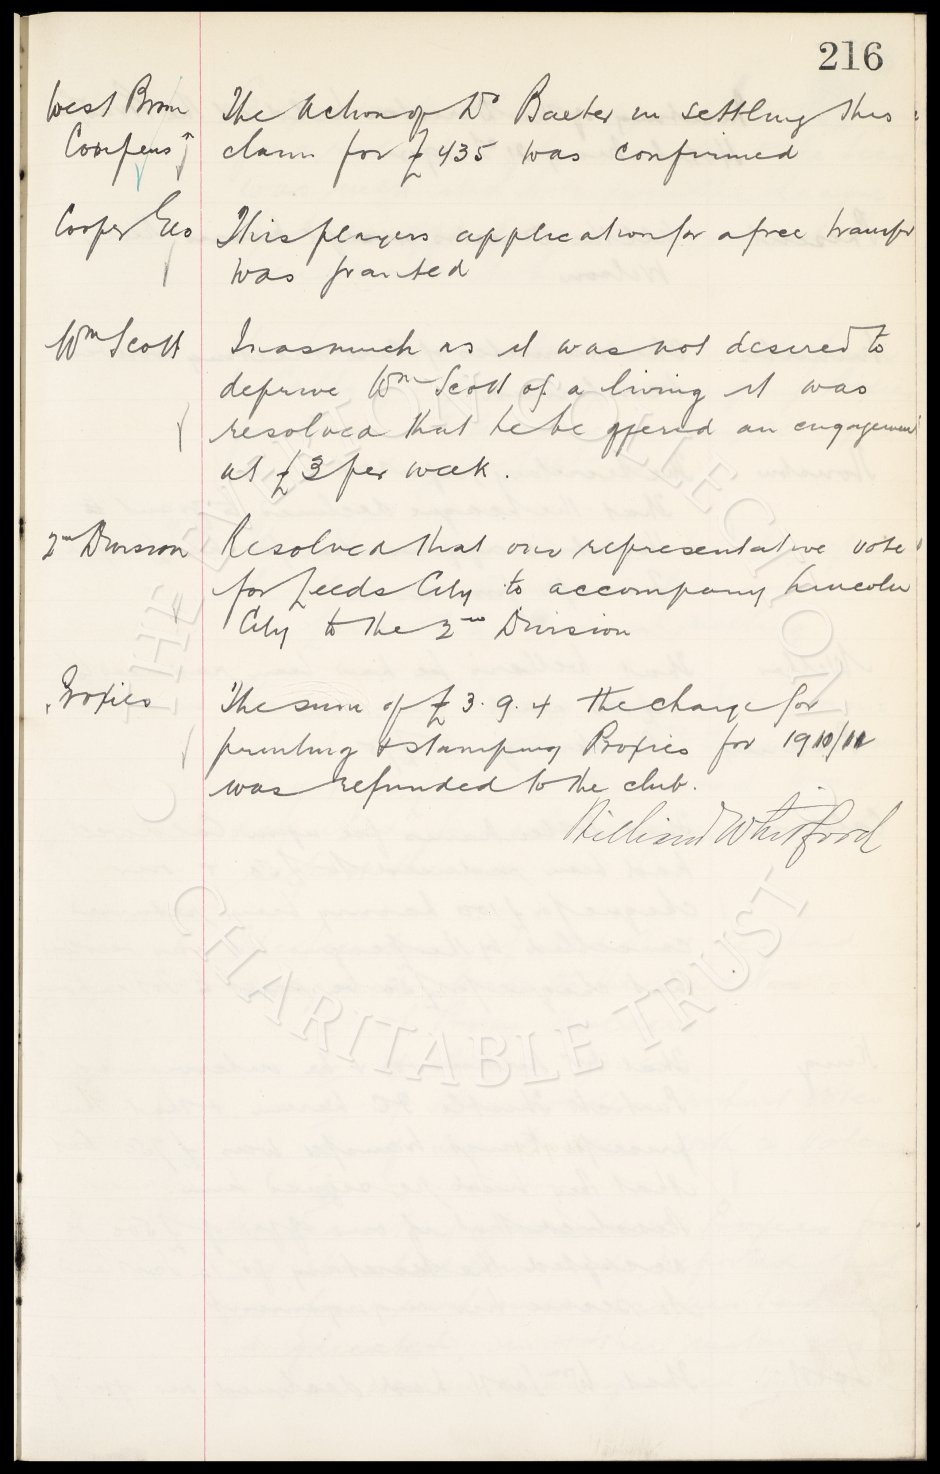 216
West Brom The Action of Dr Baxter in settling this
Compens claim for £435 was confirmed
Cooper Geo This players application for a free transfer
was granted
Wm Scott Inasmuch as it was not desired to
deprive Wm Scott of a living it was
resolved that he be offered an engagement
at £3 per week.
2nd Division Resolved that our representative vote
for Leeds City to accompany Lincoln
City to the 2nd Division
Proxies The sum of £3.9.4 the charge for
printing & stamping Proxies for 1910/11
was refunded to the club.
William Whitford
THE EVERTON COLLECTION
CHARITABLE TRUST